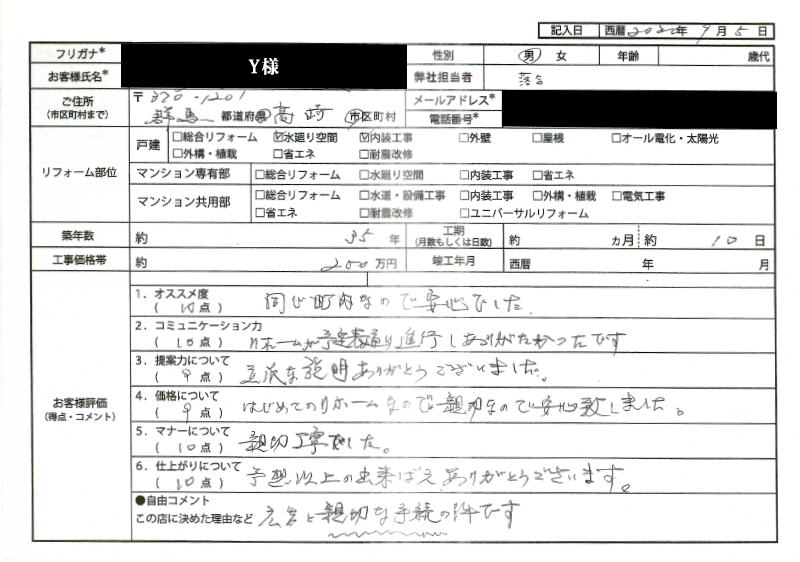 記入日 西暦 2020年 9月 5日
フリガナ* Y様 性別 男 女 年齢 歳代
お客様氏名* 弊社担当者 落合
ご住所 (市区町村まで) 〒370-1201 メールアドレス*
群馬 都道府県 高崎 市区町村 電話番号*
リフォーム部位
戸建 □総合リフォーム ☑水廻り空間 ☑内装工事 □外壁 □屋根 □オール電化・太陽光
□外構・植栽 □省エネ □耐震改修
マンション専有部 □総合リフォーム □水廻り空間 □内装工事 □省エネ
マンション共用部 □総合リフォーム □水道・設備工事 □内装工事 □外構・植栽 □電気工事
□省エネ □耐震改修 □ユニバーサルリフォーム
築年数 約 35年 工期 (月数もしくは日数) 約 カ月 約 10日
工事価格帯 約 200万円 竣工年月 西暦 年 月
お客様評価 (得点・コメント)
1.オススメ度
(10点) 同じ町内なので安心でした。
2.コミュニケーション力
(10点) リホームが予定表通り進行しありがたかったです
3.提案力について
(9点) 立派な説明ありがとうございました。
4.価格について
(9点) はじめてのリホームなので親切なので安心致しました。
5.マナーについて
(10点) 親切丁寧でした。
6.仕上がりについて
(10点) 予想以上の出来ばえ、ありがとうございます。
●自由コメント
この店に決めた理由など 広告と親切な手続の件です